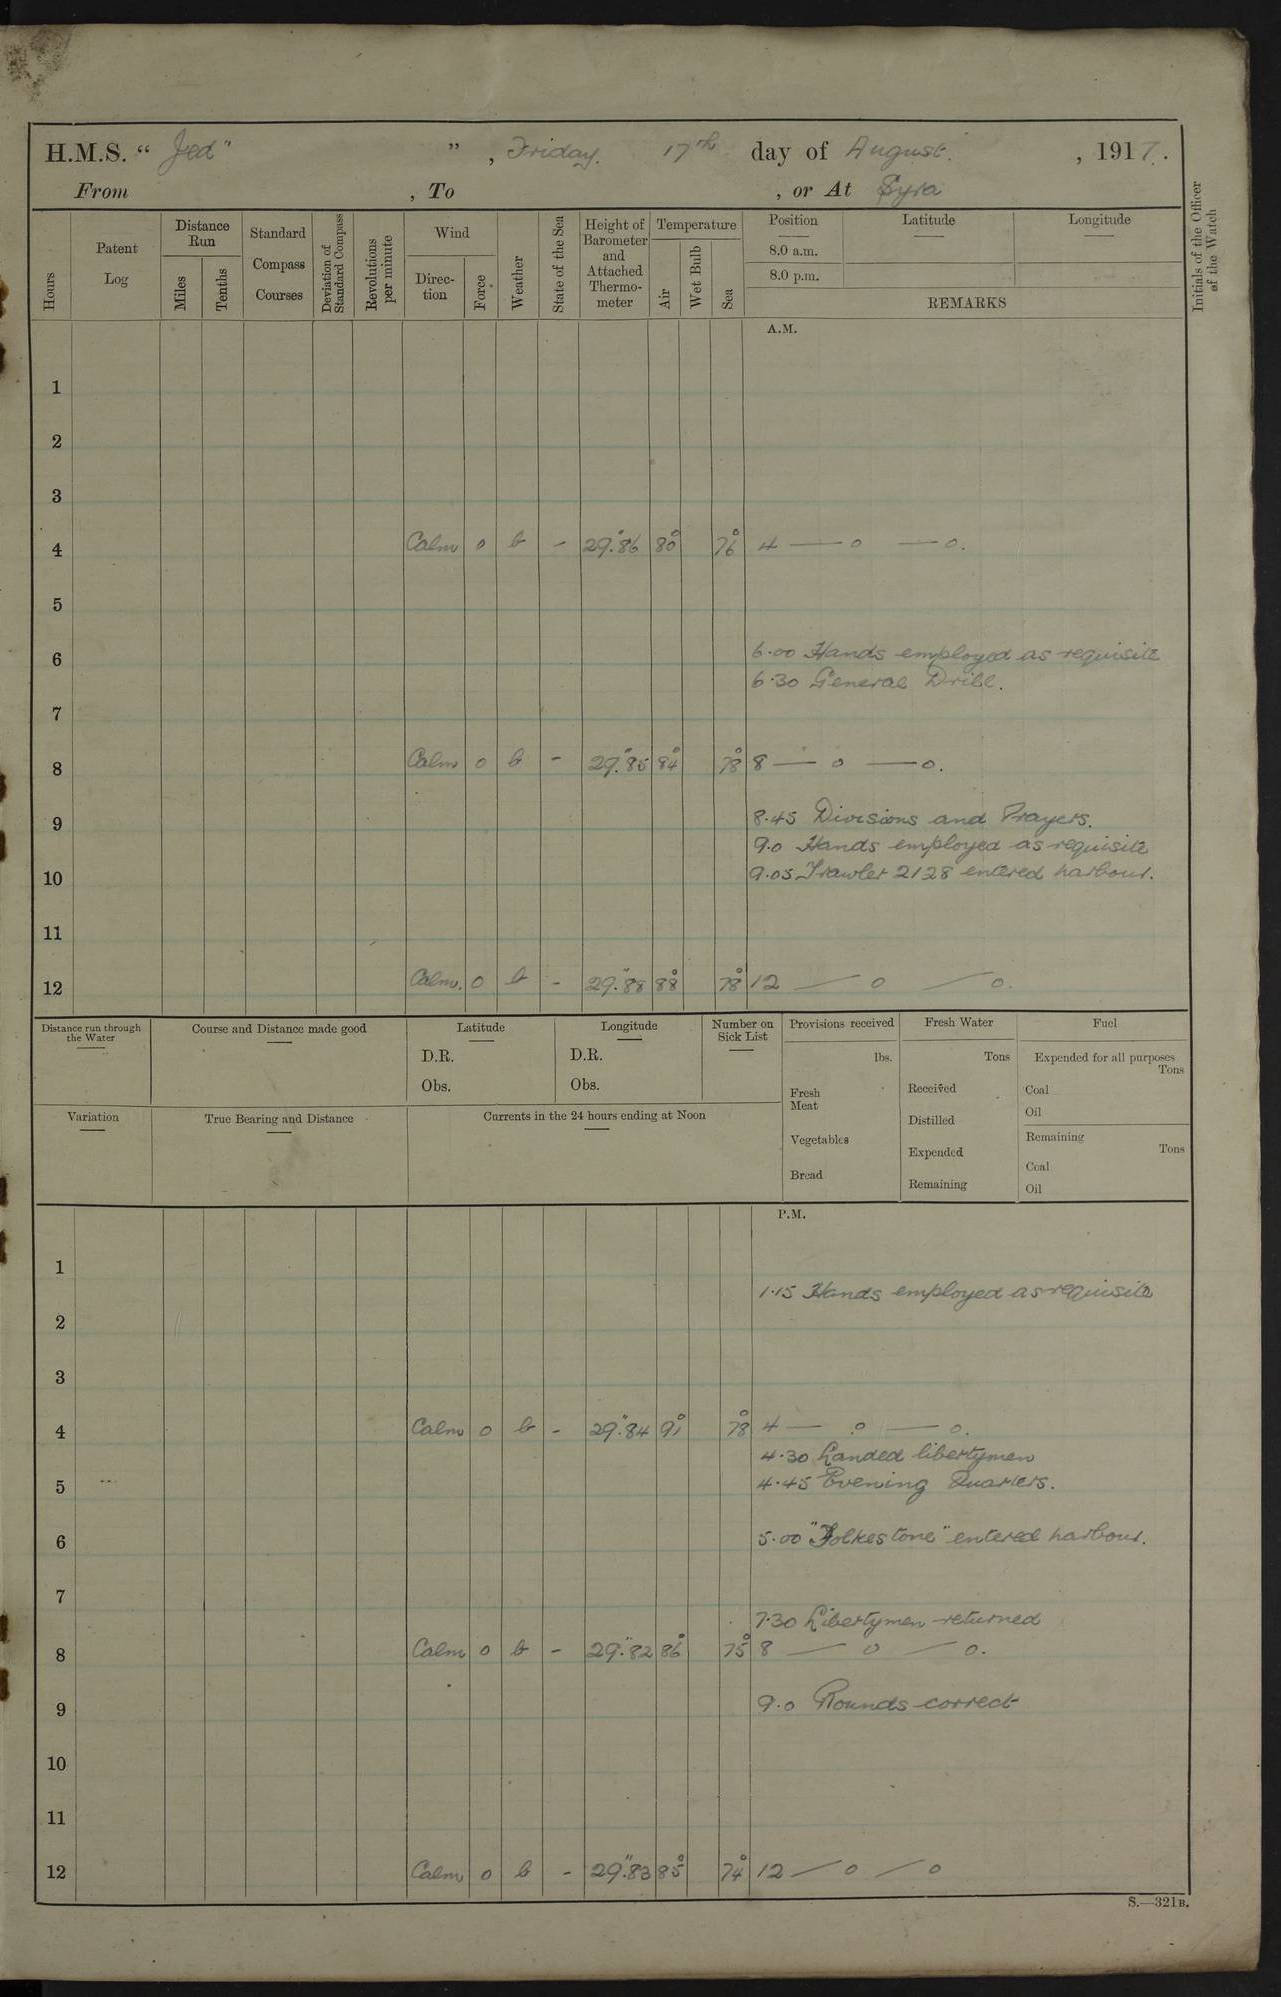 H.M.S. “ Jed” ” , Friday. 17th day of August. , 1917.
From , To , or At Syra
Hours
Patent Log
Distance Run
Miles
Tenths
Standard Compass Courses
Deviation of Standard Compass
Revolutions per minute
Wind
Direc- tion
Force
Weather
State of the Sea
Height of Barometer and Attached Thermo- meter
Temperature
Air
Wet Bulb
Sea
Position
8.0 a.m.
8.0 p.m.
Latitude
Longitude
REMARKS
Initials of the Officer of the Watch
A.M.
1
2
3
4 Calm 0 b - 29".86 80° 76° 4 — o — o.
5
6 6.00 Hands employed as requisite
6.30 General Drill.
7
8 Calm 0 b - 29".85 84° 78° 8 — o — o.
9 8.45 Divisions and Prayers.
9.0 Hands employed as requisite
10 9.05 Trawler 2128 entered harbour.
11
12 Calm. 0 b - 29".88 88° 78° 12 — o — o.
Distance run through the Water
Course and Distance made good
Latitude
D.R.
Obs.
Longitude
D.R.
Obs.
Number on Sick List
Provisions received
lbs.
Fresh Meat
Vegetables
Bread
Fresh Water
Tons
Received
Distilled
Expended
Remaining
Fuel
Expended for all purposes
Tons
Coal
Oil
Remaining
Tons
Coal
Oil
Variation
True Bearing and Distance
Currents in the 24 hours ending at Noon
P.M.
1
1.15 Hands employed as requisite
2
3
4 Calm 0 b - 29".84 91° 78° 4 — o — o.
4.30 Landed libertymen
5 4.45 Evening Quarters.
6 5.00 "Folkestone" entered harbour.
7
7.30 Libertymen returned
8 Calm 0 b - 29".82 86° 75° 8 — o — o.
9 9.0 Rounds correct
10
11
12 Calm 0 b - 29".83 85° 74° 12 — o — o
S.—321B.